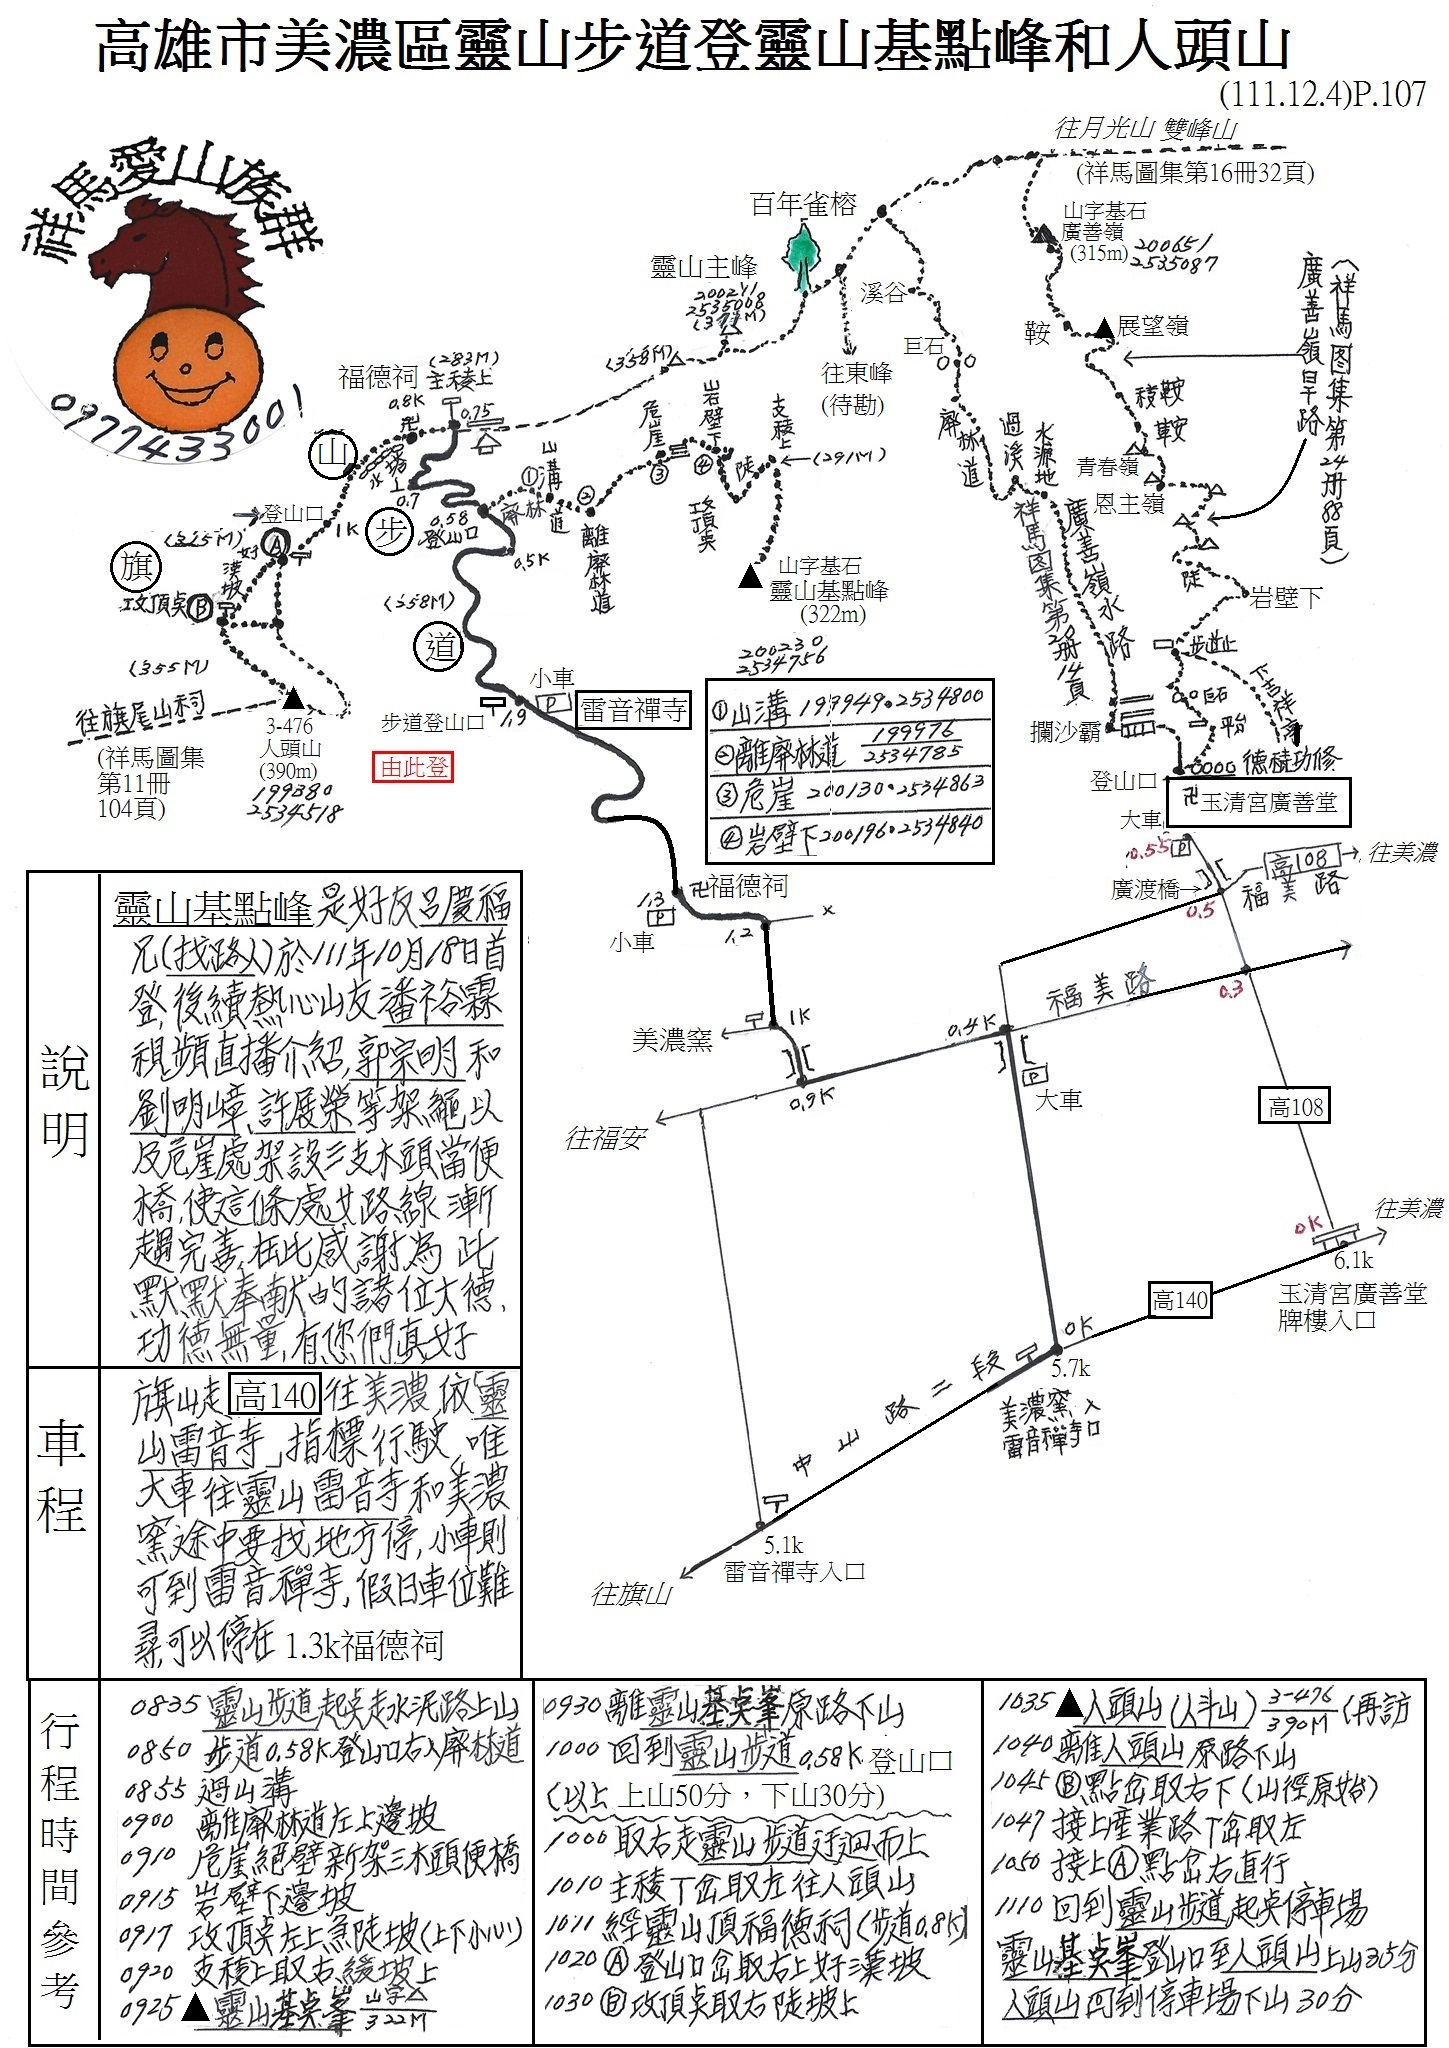 高雄市美濃區靈山步道登靈山基點峰和人頭山
(111.12.4)P.107
祥馬愛山族群
0977433001
往月光山 雙峰山
(祥馬圖集第16冊32頁)
百年雀榕
山字基石
廣善嶺
(315m)
200651
2535087
靈山主峰
200241
2535008
溪谷
鞍
展望嶺
(祥馬图集第24册88頁)
廣善嶺旱路
巨石
往東峰
(待勘)
(358M)
(283M)
福德祠 主稜上
0.8K
0.75
山
0.7
步
0.58
登山口
0.5K
①山溝
廢林道
②
離廢林道
危崖
③
岩壁下
④
陡
攻頂點
支稜上
(291M)
廢林道
過溪
水源地
稜
鞍
鞍
青春嶺
恩主嶺
陡
岩壁下
步道止
祥馬图集第20册14頁
廣善嶺水路
登山口
1K
旗
Ⓐ
好漢坡
攻頂點Ⓑ
(355M)
往旗尾山祠
(祥馬圖集
第11冊
104頁)
3-476
人頭山
(390m)
199380
2534518
(358M)
道
山字基石
靈山基點峰
(322m)
200230
2534756
小車
P
雷音禪寺
步道登山口
1.9
由此登
①山溝 199949.2534800
②離廢林道 199976
2534785
③危崖 200130.2534863
④岩壁下200196.2534840
攔沙霸
登山口
德積功修
卍玉清宮廣善堂
大車
0.55
P
廣渡橋→
高108
往美濃
福美路
0.5
1.3
P
卍福德祠
小車
1.2
x
福美路
0.3
美濃窯
1K
0.4K
P
大車
0.9K
往福安
高108
往美濃
0K
6.1k
玉清宮廣善堂
牌樓入口
高140
0K
5.7k
美濃窯入
雷音禪寺口
中山路二段
5.1k
雷音禪寺入口
往旗山
說明
靈山基點峰是好友呂慶福
兄(找路人)於111年10月18日首
登,後續熱心山友潘裕霖
視頻直播介紹,郭宗明和
劉明嶂、許展榮等架繩以
及危崖處架設三支木頭當便
橋,使這條處女路線漸
趨完善,在此感謝為此
默默奉献的諸位大德,
功德無量,有您們真好
車程
旗山走高140往美濃,依「靈
山雷音寺」指標行駛,唯
大車往靈山雷音寺和美濃
窯途中要找地方停,小車則
可到雷音禪寺,假日車位難
尋,可以停在1.3k福德祠
行程時間參考
0835 靈山步道起點走水泥路上山
0850 步道0.58K登山口右入廢林道
0855 過山溝
0900 離廢林道左上邊坡
0910 危崖絕壁新架三木頭便橋
0915 岩壁下邊坡
0917 攻頂點左上急陡坡(上下小心)
0920 支稜上取右緩坡上
0925▲靈山基点峯 山字△
322M
0930離靈山基点峯原路下山
1000 回到靈山步道0.58K登山口
(以上 上山50分，下山30分)
1000 取右走靈山步道迂迴而上
1010 主稜丁岔取左往人頭山
1011 經靈山頂福德祠(步道0.8K)
1020 Ⓐ登山口岔取右上好漢坡
1030 Ⓑ攻頂点取右陡坡上
1035▲人頭山(人斗山) 3-476
390M (再訪
1040離人頭山原路下山
1045 Ⓑ點岔取右下(山徑原始)
1047 接上産業路丁岔取左
1050 接上Ⓐ點岔右直行
1110 回到靈山步道起点停車場
靈山基点峯登山口至人頭山上山35分
人頭山回到停車場下山30分